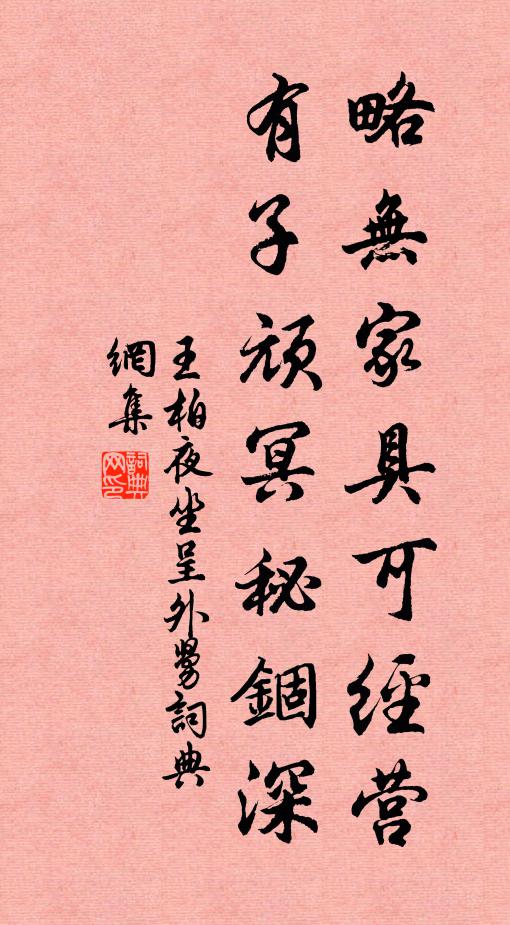 略無家具可經营
有子頑冥秘錮深
王柏夜坐呈外舅詞典
網集
詞典網印